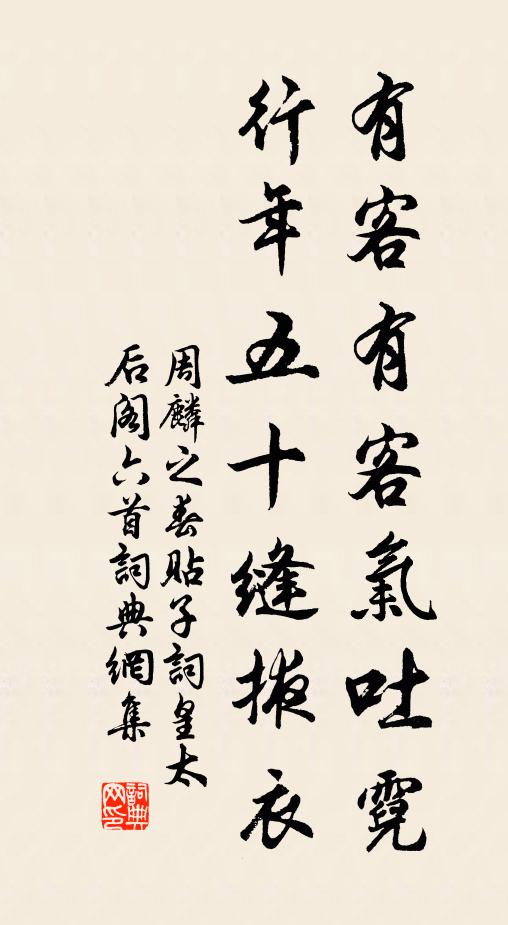 有客有客氣吐霓
行年五十縫掖衣
周麟之春貼子詞皇太
后閣六首詞典網集
詞典网印